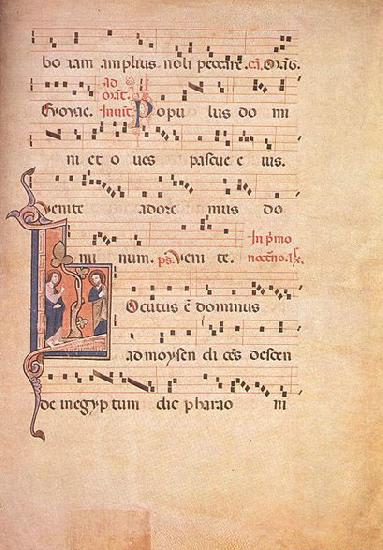 bo iam amplius noli peccare. cā. Orās.
ad orāt.
Evovae. Invit. Popu lus do mi
ni et o ves pascue e ius.
Venite adore mus do
mi num. ps. Veni te. In pˢmo nocēno.
Locutus ē dominus
ad moysen di cēs descen
de in egyp tum dic pharao ni